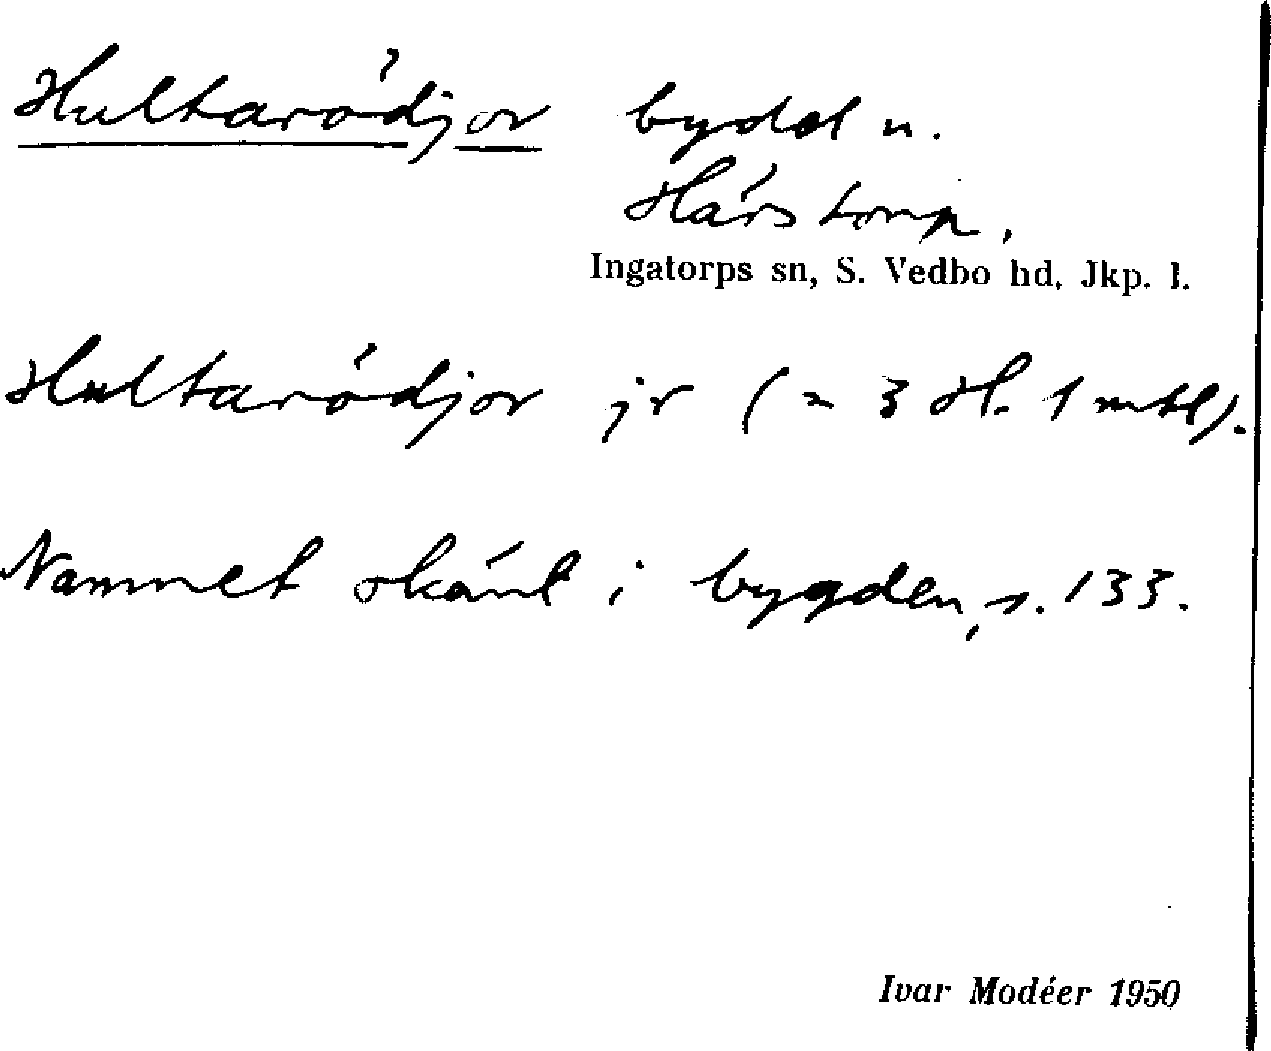 Hultarödjor bydel u.
Hårstorp,
Ingatorps sn, S. Vedbo hd, Jkp. l.
Hultarödjor jr (= 3 H. 1 mtl).
Namnet okänt i bygden, s. 133.
Ivar Modéer 1950